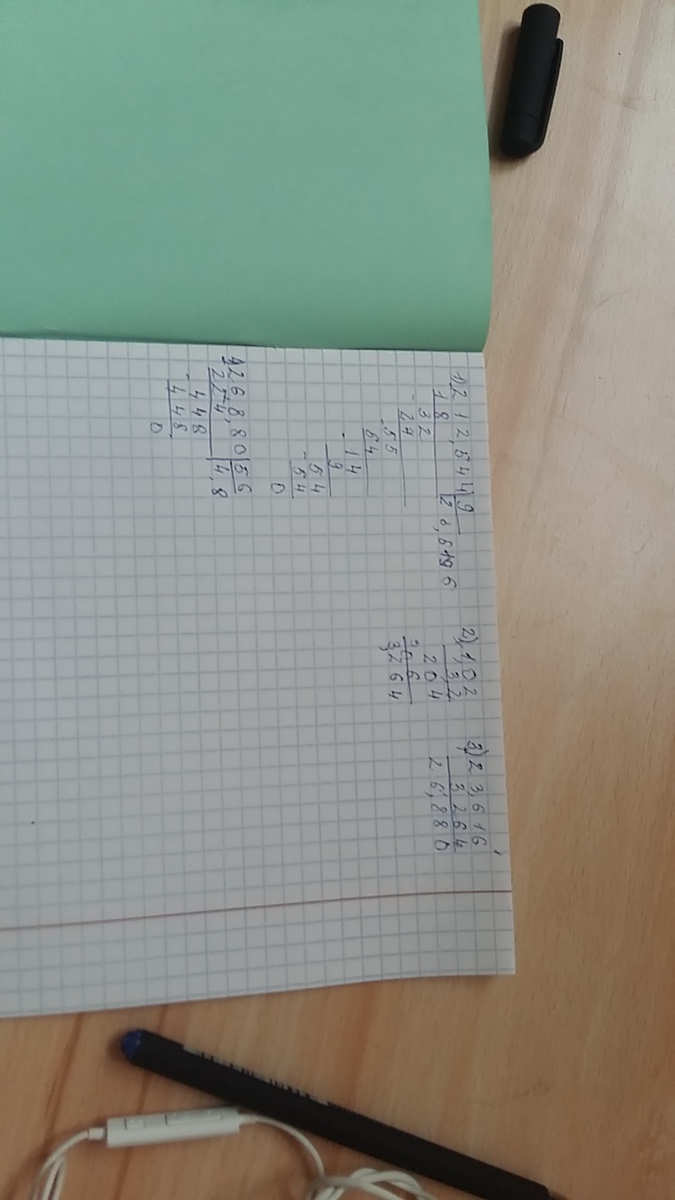 1) 212,544|9
18 23,6196
- 32
29
- 55
54
- 14
9
- 54
54
0
2) 1,02
3,2
204
306
3,264
3) 23,616
3,264
26,880
4) 26,880|56
224 4,8
- 448
448
0